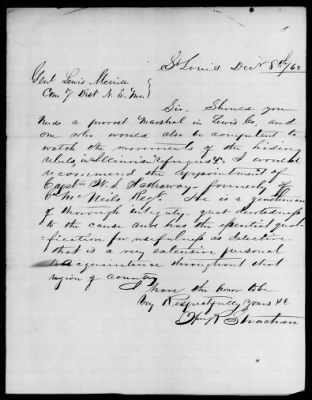 St Louis Decr 8th/62
Genl Lewis Merrill
Com'g Dist N. E. Mo.
Sir. Should you
need a provost Marshal in Lewis Co, and
one who would also be competent to
watch the movements of the hiding
rebels, in Illinois refugees &c. I would
recommend the appointment of
Capt W. S. Hathaway, formerly of
Col McNeils Regt. He is a gentleman
of thorough integrity great devotedness
to the cause and has the essential quali-
fication for usefulness as detective
that is a very extensive personal
acquaintance throughout that
region of country
I have the honor to be
Very Respectfully Yours &c
Strachan